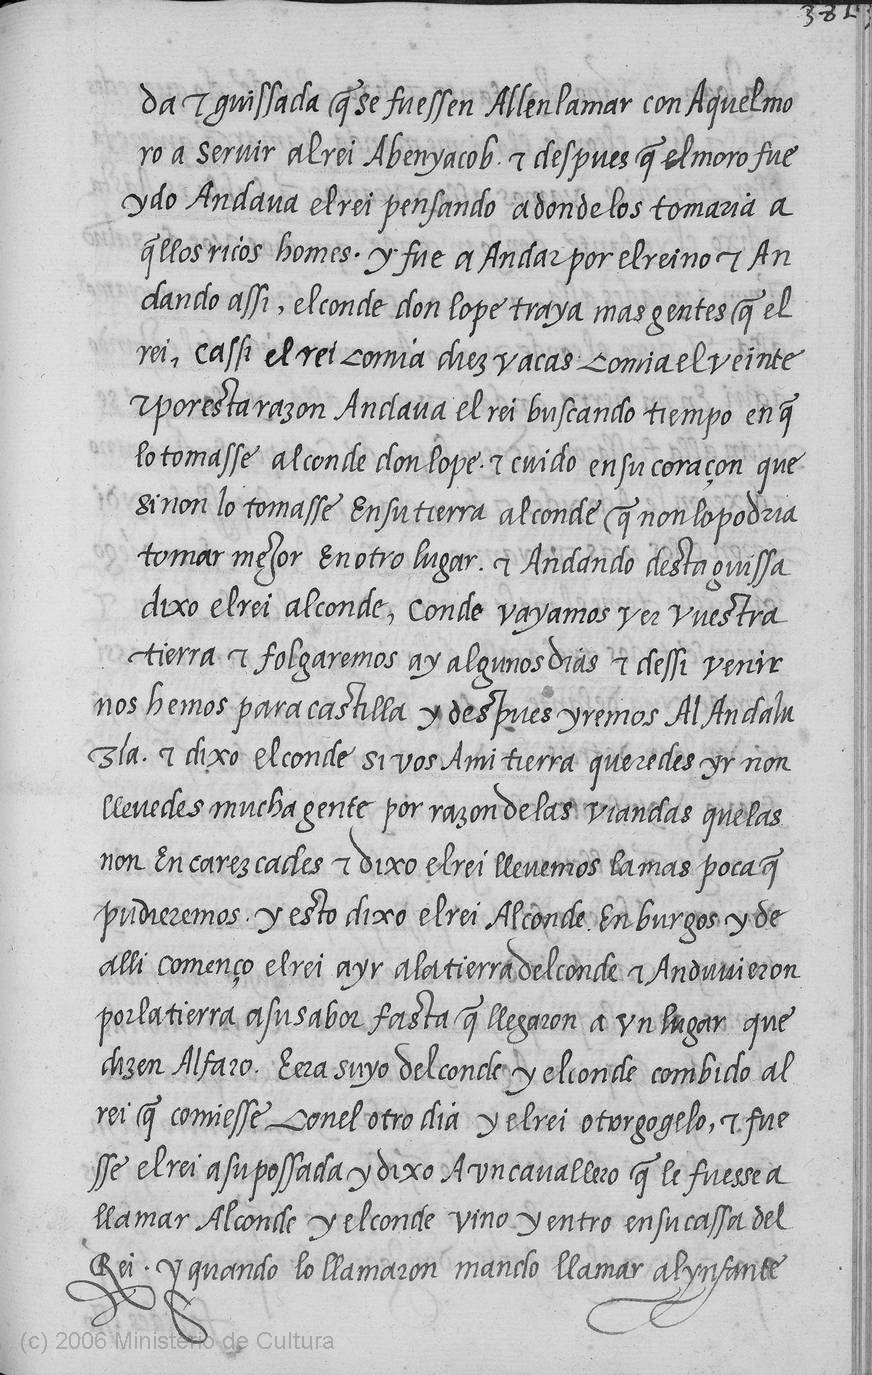 381
da τ guissada q̄ se fuessen Allen lamar con Aquel mo
ro a servir al rei Abenyacob. τ despues q̄ el moro fue
ydo Andava el rei pensando adonde los tomaria a
q̄llos ricos homes. y fue a Andar por el reino τ An
dando assi, el conde don lope traya mas gentes q̄ el
rei, Cassi el rei comia diez vacas comia el veinte
τ por esta razon Andava el rei buscando tiempo en q̄
lo tomasse al conde don lope. τ cuido en su coraçon que
si non lo tomasse En su tierra al conde q̄ non lo podria
tomar mejor En otro lugar. τ Andando desta guissa
dixo el rei al conde, Conde vayamos ver vuestra
tierra τ folgaremos ay algunos dias τ dessi venir
nos hemos para castilla y despues yremos Al Andalu
zia. τ dixo el conde si vos Ami tierra queredes yr non
llevedes mucha gente por razon de las viandas que las
non Encarezcades τ dixo el rei llevemos la mas poca q̄
pudieremos. y esto dixo el rei Al conde En burgos y de
alli començo el rei a yr a la tierra del conde τ Anduvieron
por la tierra a su sabor fasta q̄ llegaron a vn lugar que
dizen Alfaro. E era suyo del conde y el conde combido al
rei q̄ comiesse con el otro dia y el rei otorgogelo, τ fue
sse el rei a su possada y dixo A vn cavallero q̄ le fuesse a
llamar Al conde y el conde vino y entro en su cassa del
Rei. y quando lo llamaron mando llamar al ynfante
(c) 2006 Ministerio de Cultura